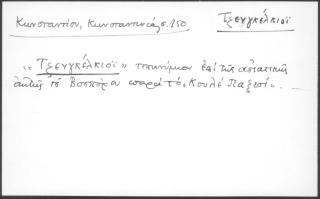 Κωνσταντίου, Κωνσταντινιάς σ. 150
Τσενγκέλκιοϊ
"Τσενγκέλκιοϊ" τοπωνύμιον ἐπί τῆς ἀσιατικῆς
ἀκτῆς τοῦ Βοσπόρου παρά τό "Κουλέ Παξεσί".